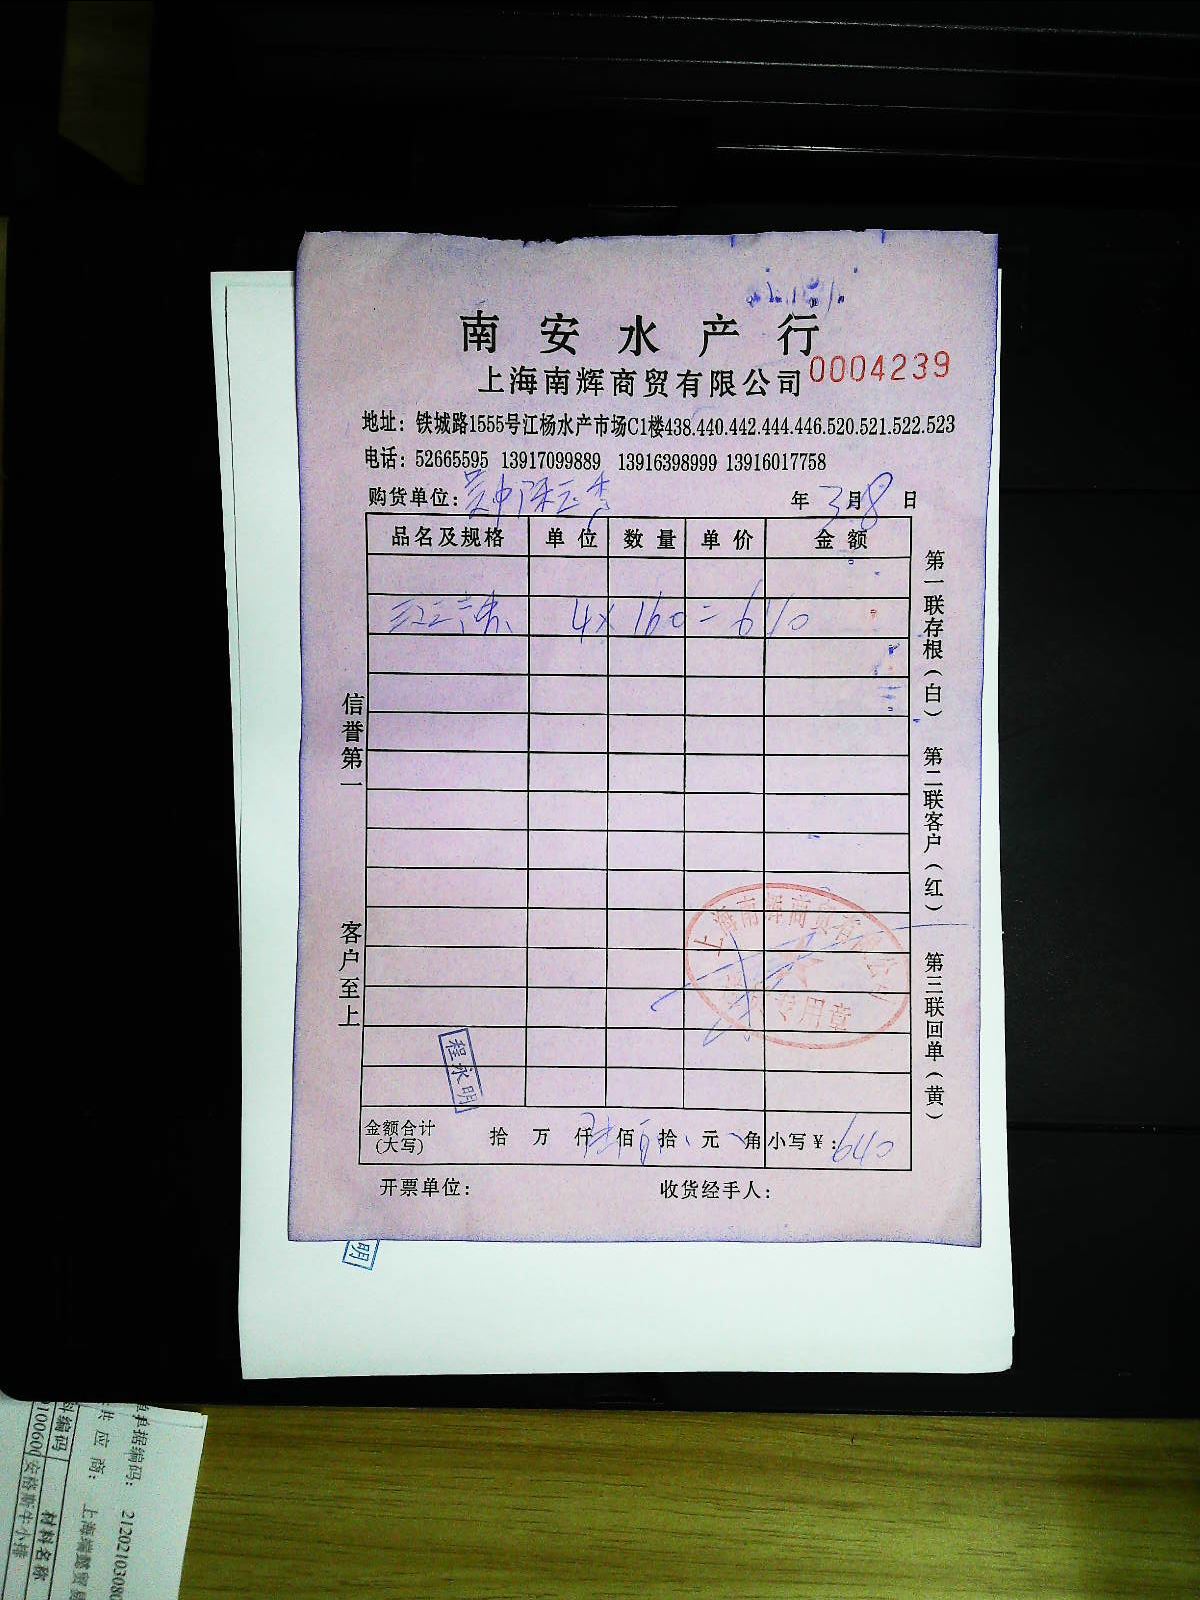 南安水产行
上海南辉商贸有限公司 0004239
地址：铁城路1555号江杨水产市场C1楼438.440.442.444.446.520.521.522.523
电话：52665595 13917099889 13916398999 13916017758
购货单位： 年3月8日
品名及规格 单位 数量 单价 金额
4×160=640
信誉第一
客户至上
第一联存根（白）
第二联客户（红）
第三联回单（黄）
上海南辉商贸有限公司
专用章
程永明
金额合计（大写） 拾 万 仟 陆佰 拾 元 角 小写￥：640
开票单位： 收货经手人：
明
单据编码：21202103080
供应商：上海端懿贸易
料编码 材料名称
0100600 安格斯牛小排